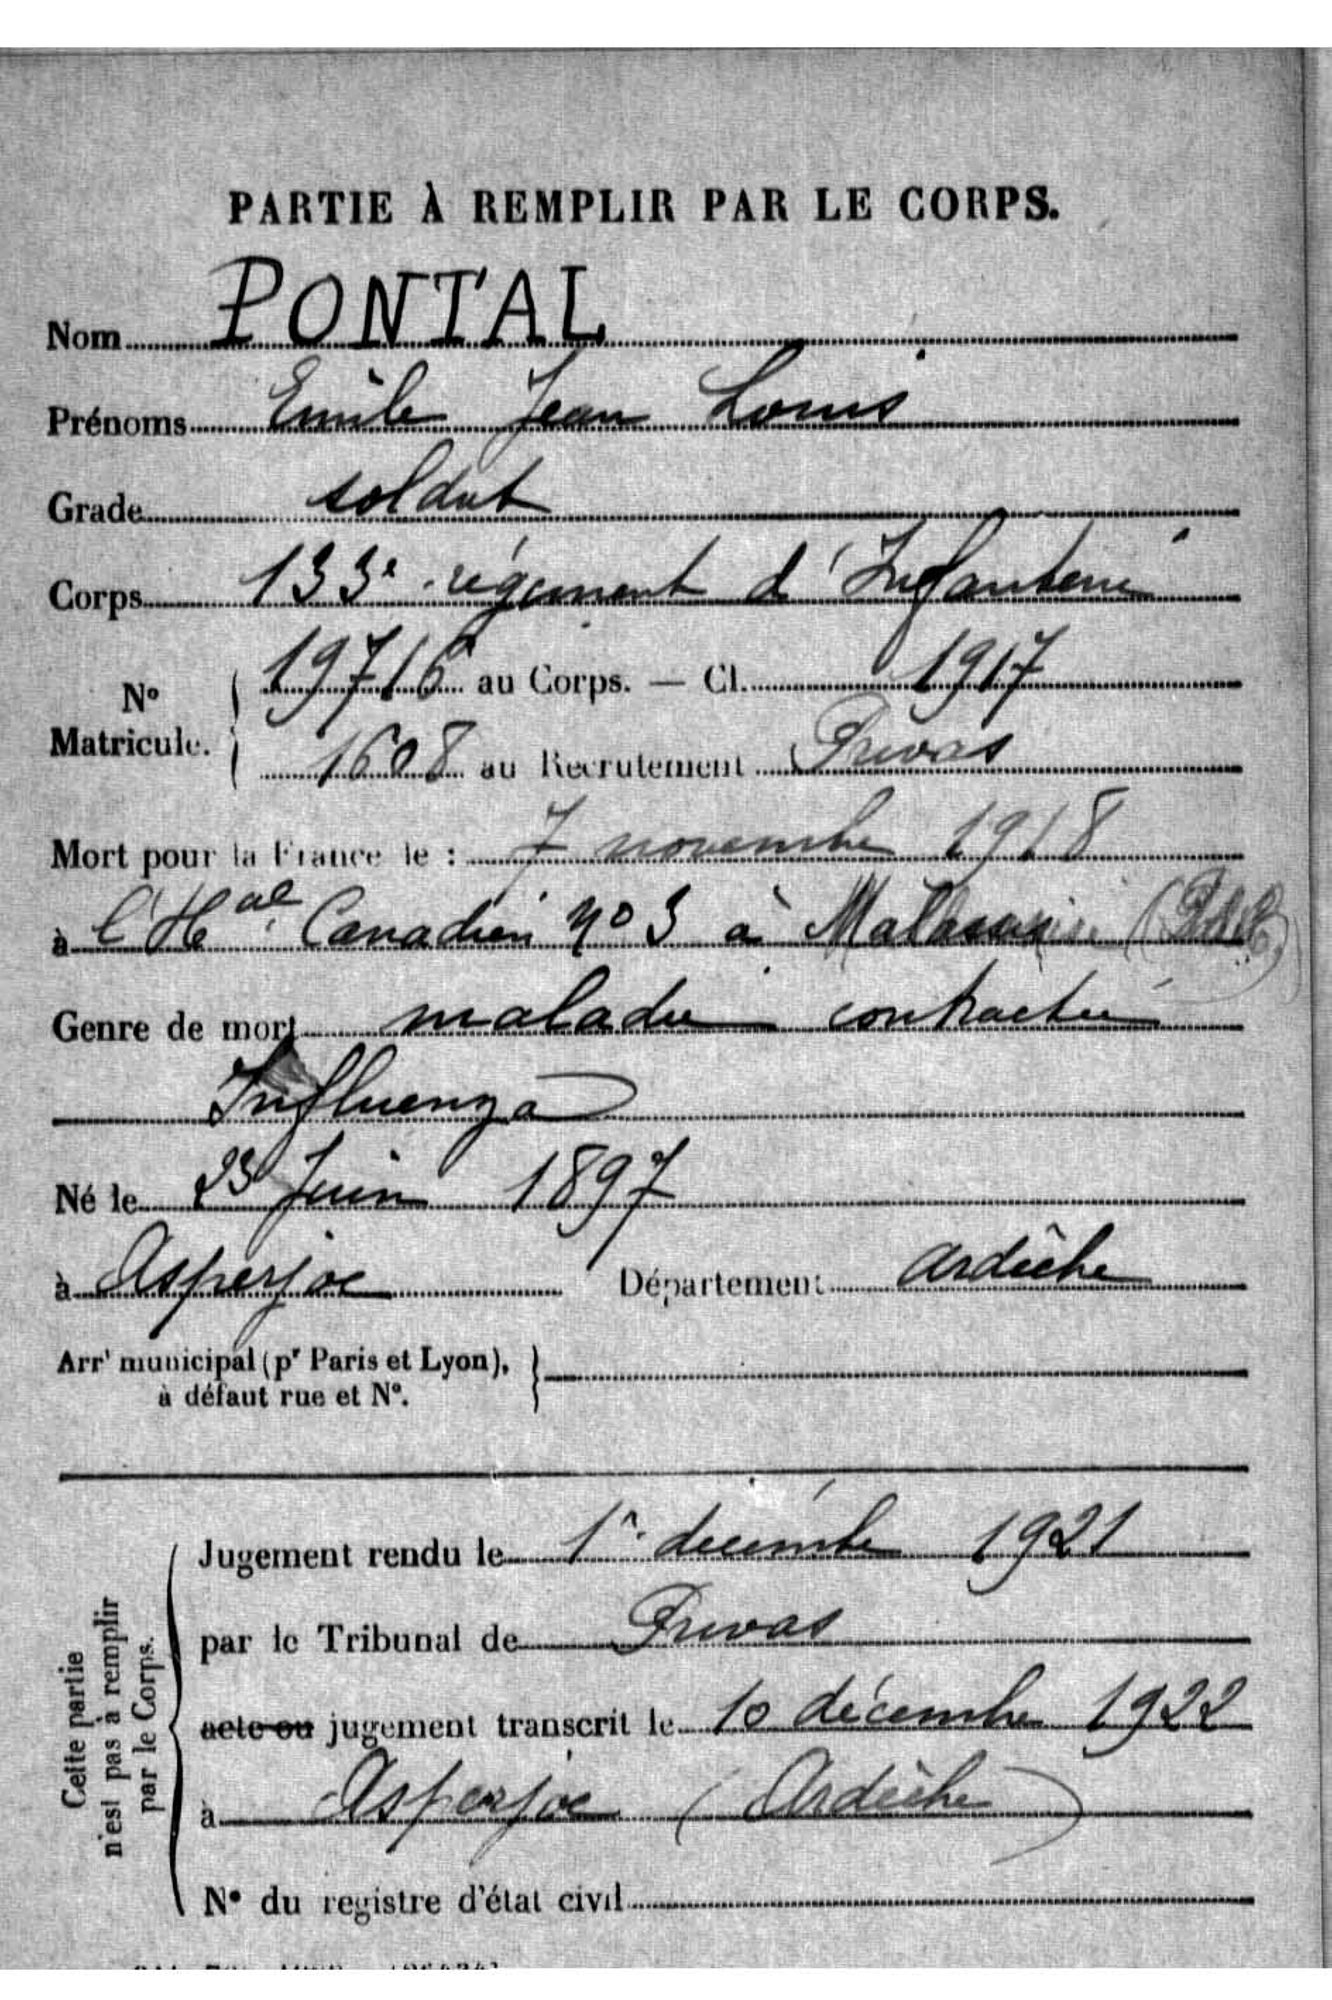 PARTIE À REMPLIR PAR LE CORPS.
Nom PONTAL
Prénoms Emile Jean Louis
Grade soldat
Corps 133e régiment d'Infanterie
N° Matricule. 19716 au Corps. — Cl. 1917
1608 au Recrutement Privas
Mort pour la France le : 7 novembre 1918
à l'Hal Canadien No 3 à
Genre de mort maladie contractée
Influenza
Né le 23 Juin 1897
à Asperjoc Département Ardèche
Arrt municipal (pr Paris et Lyon),
à défaut rue et N°.
Cette partie
n'est pas à remplir
par le Corps.
Jugement rendu le 1er décembre 1921
par le Tribunal de Privas
acte ou jugement transcrit le 10 décembre 1922
à Asperjoc (Ardèche)
N° du registre d'état civil